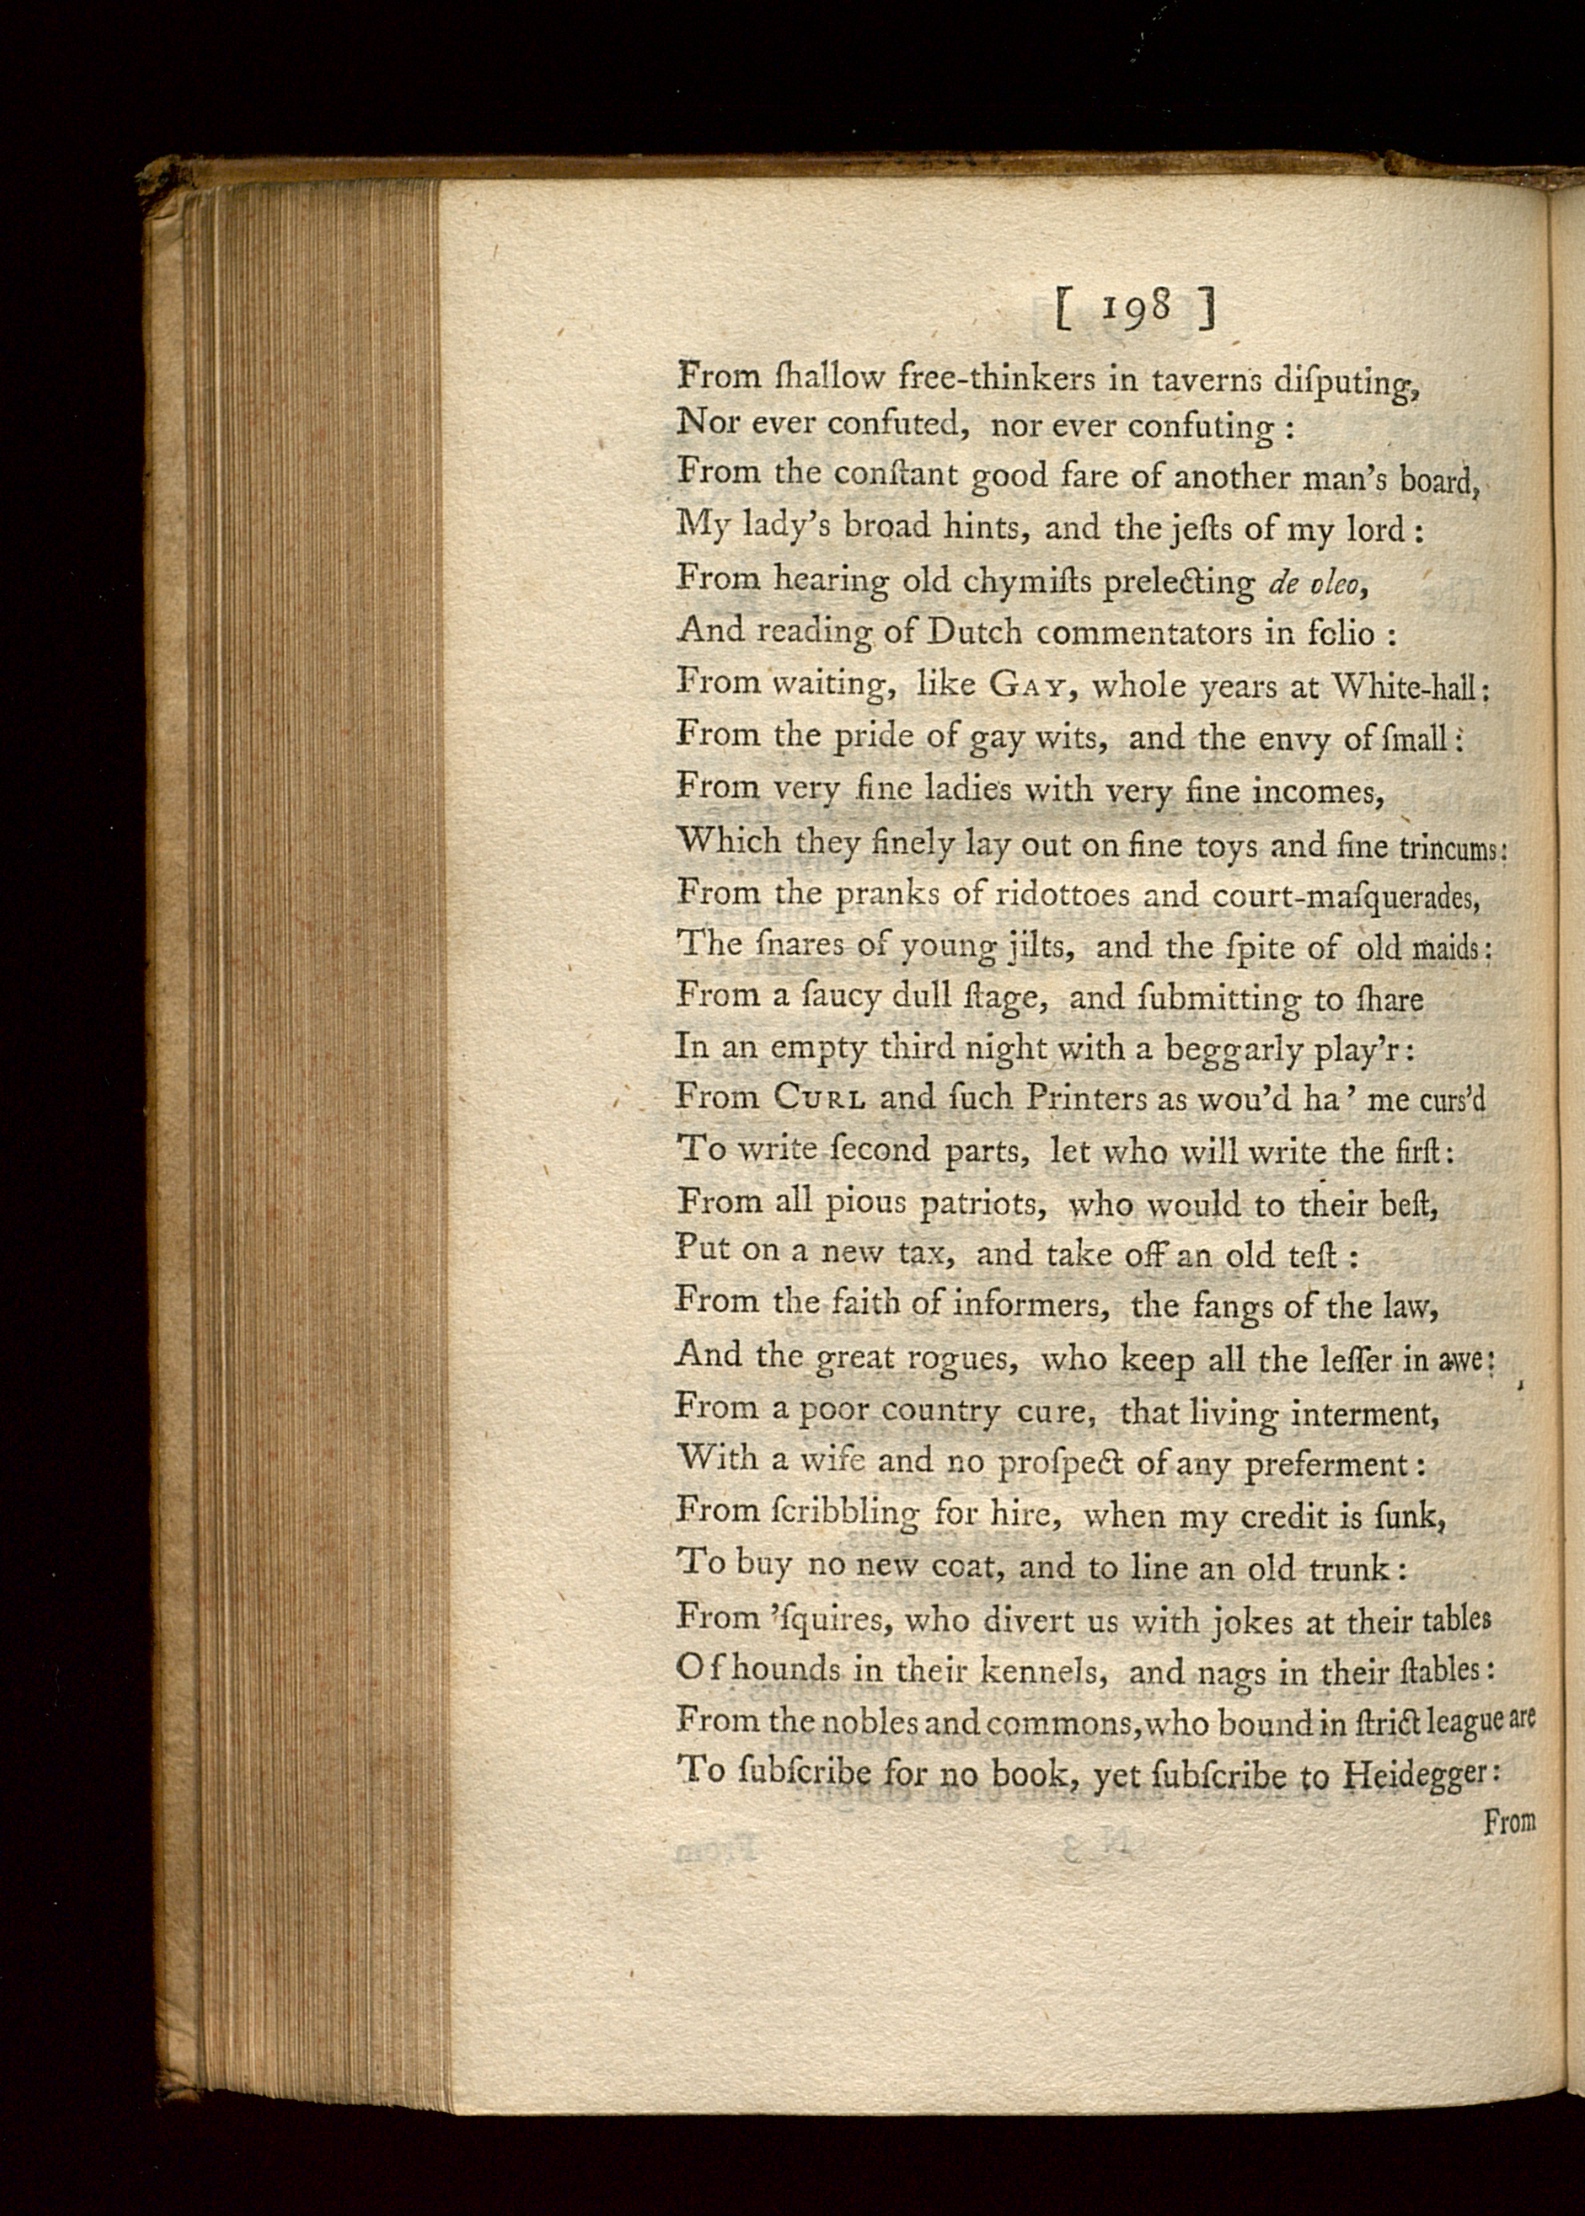 [ 198 ]
From ſhallow free-thinkers in taverns diſputing,
Nor ever confuted, nor ever confuting :
From the conſtant good fare of another man's board,
My lady's broad hints, and the jeſts of my lord :
From hearing old chymiſts prelecting de oleo,
And reading of Dutch commentators in folio :
From waiting, like GAY, whole years at White-hall :
From the pride of gay wits, and the envy of ſmall :
From very fine ladies with very fine incomes,
Which they finely lay out on fine toys and fine trincums :
From the pranks of ridottoes and court-maſquerades,
The ſnares of young jilts, and the ſpite of old maids :
From a ſaucy dull ſtage, and ſubmitting to ſhare
In an empty third night with a beggarly play'r :
From CURL and ſuch Printers as wou'd ha' me curs'd
To write ſecond parts, let who will write the firſt :
From all pious patriots, who would to their beſt,
Put on a new tax, and take off an old teſt :
From the faith of informers, the fangs of the law,
And the great rogues, who keep all the leſſer in awe :
From a poor country cure, that living interment,
With a wife and no proſpect of any preferment :
From ſcribbling for hire, when my credit is ſunk,
To buy no new coat, and to line an old trunk :
From 'ſquires, who divert us with jokes at their tables
Of hounds in their kennels, and nags in their ſtables :
From the nobles and commons, who bound in ſtrict league are
To ſubſcribe for no book, yet ſubſcribe to Heidegger :
From